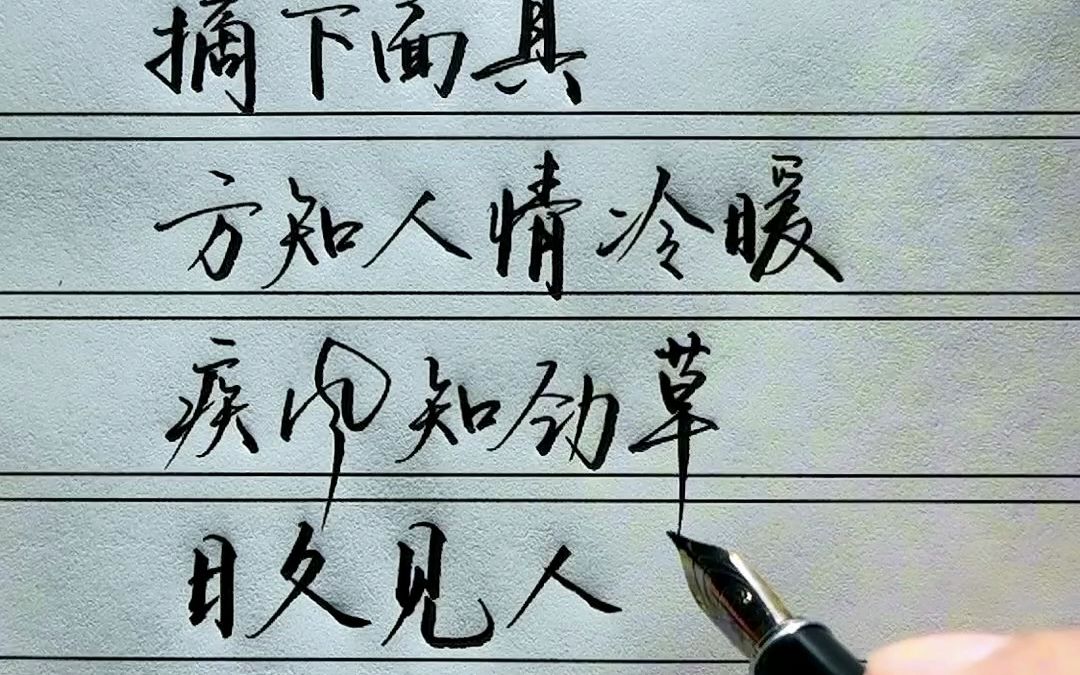 摘下面具
方知人情冷暖
疾风知劲草
日久见人